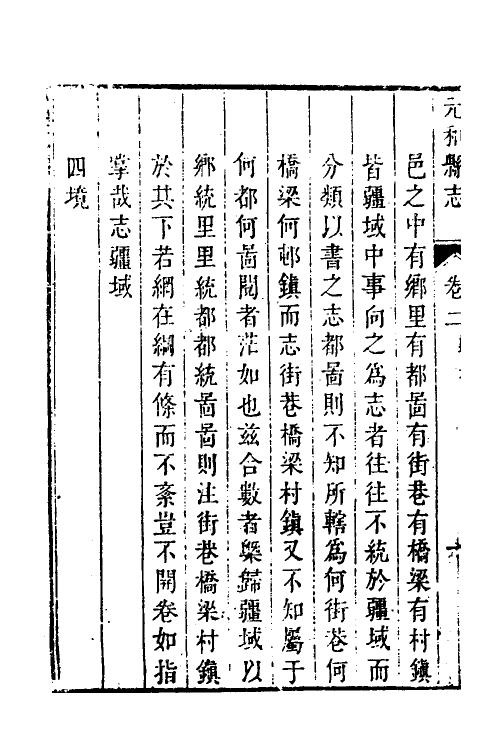 元和縣志 卷二
邑之中有鄉里有都啚有街巷有橋梁有村鎮
皆疆域中事向之爲志者往往不統於疆域而
分類以書之志都啚則不知所轄爲何街巷何
橋梁何邨鎮而志街巷橋梁村鎮又不知屬于
何都何啚閱者茫如也兹合數者槩歸疆域以
鄉統里里統都都統啚啚則注街巷橋梁村鎮
於其下若網在綱有條而不紊豈不開卷如指
掌哉志疆域
四境